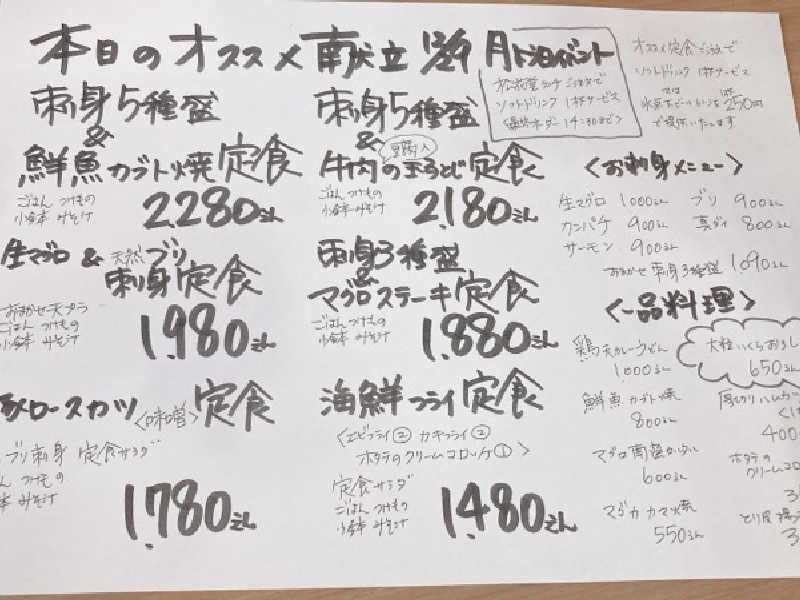 本日のオススメ献立 12/29 月
刺身5種盛
&
鮮魚カブト焼定食
ごはん つけもの
小鉢1本 みそ汁
2.280えん
刺身5種盛
&
牛肉の玉子とじ定食
ごはん つけもの
みそ汁
2.180えん
生マグロ & 天然ブリ
刺身定食
おまかせ天プラ
ごはん つけもの
みそ汁
1.980えん
刺身3種盛
&
マグロステーキ定食
ごはん つけもの
みそ汁
1.880えん
ロースカツ〈味噌〉定食
ブリ刺身 定食サラダ
つけもの
みそ汁
1.780えん
海鮮フライ定食
〈エビフライ② カキフライ②
ホタテのクリームコロッケ①〉
定食サラダ
ごはん つけもの
みそ汁
1.480えん
ランチご注文で
ソフトドリンク1杯サービス
14:30まで
オススメ定食ご注文で
ソフトドリンク1杯サービス
250円
で提供いたします
〈お刺身メニュー〉
生マグロ 1000えん ブリ 900えん
カンパチ 900えん 真ダイ 800えん
サーモン 900えん
おまかせ刺身3種盛 1,090えん
〈一品料理〉
鶏天カレーうどん
1,000えん
大粒いくらおろし
650えん
鮮魚カブト焼
800えん
厚切りハム
400
マグロ南蛮
600えん
ホタテの
クリームコロ
マグロカマ焼
550えん
とり皮